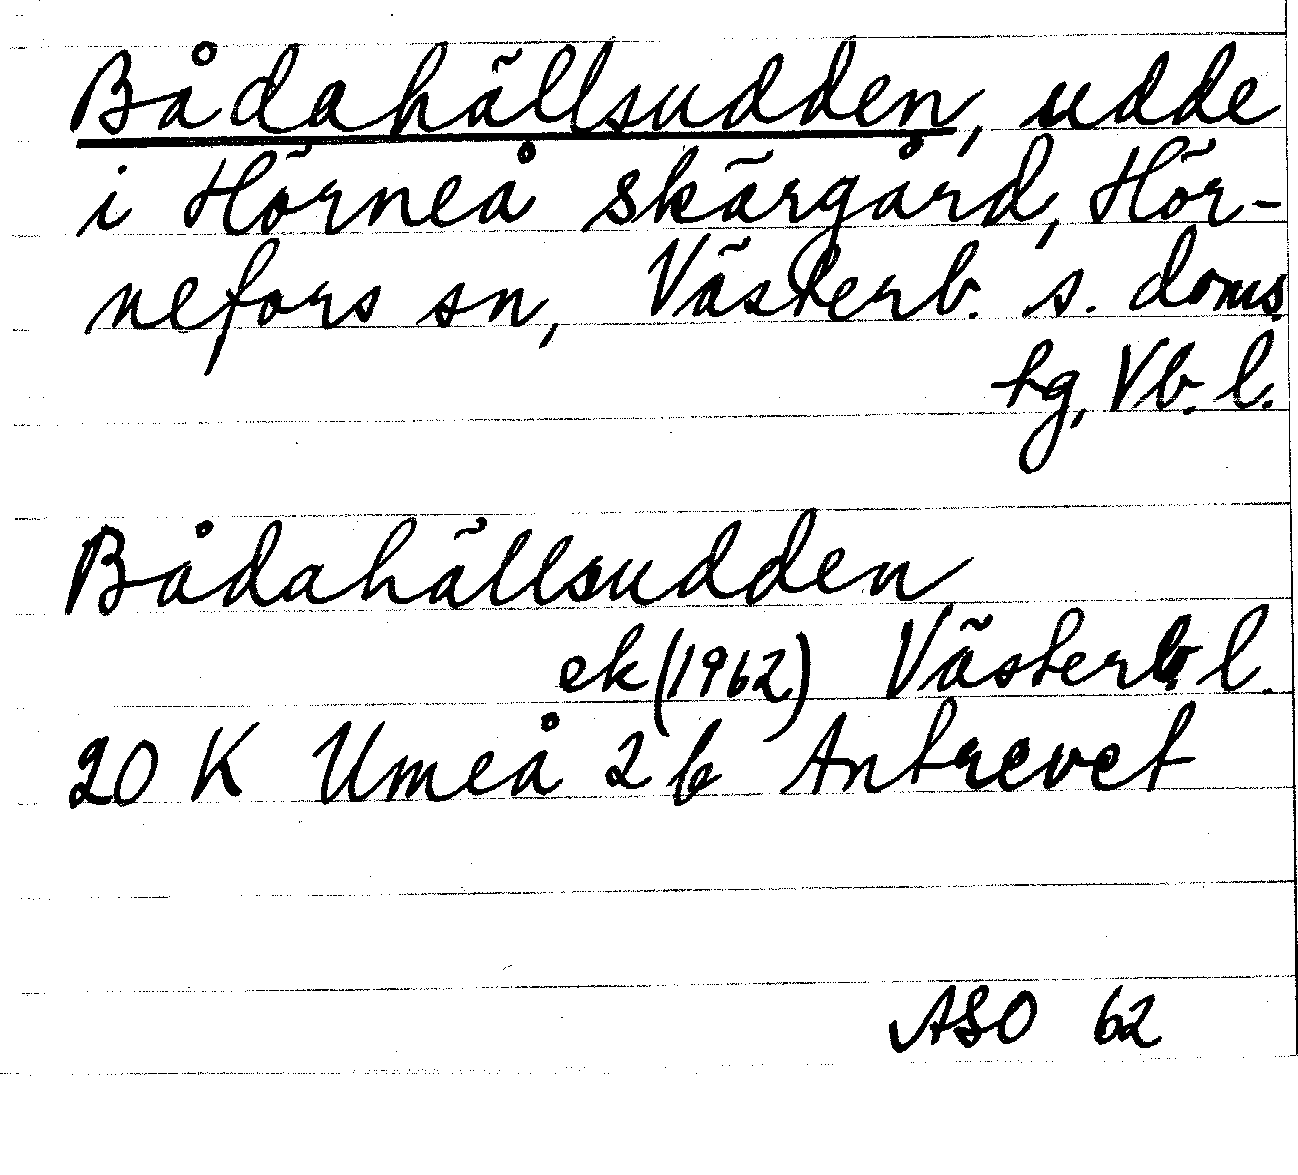 Bådahällsudden, udde
i Hörneå skärgård, Hör-
nefors sn, Västerb. s. doms.
hg, Vb. l.
Bådahällsudden
ek (1962) Västerb. l.
20 K Umeå 2 b Antrevet
ASO 62